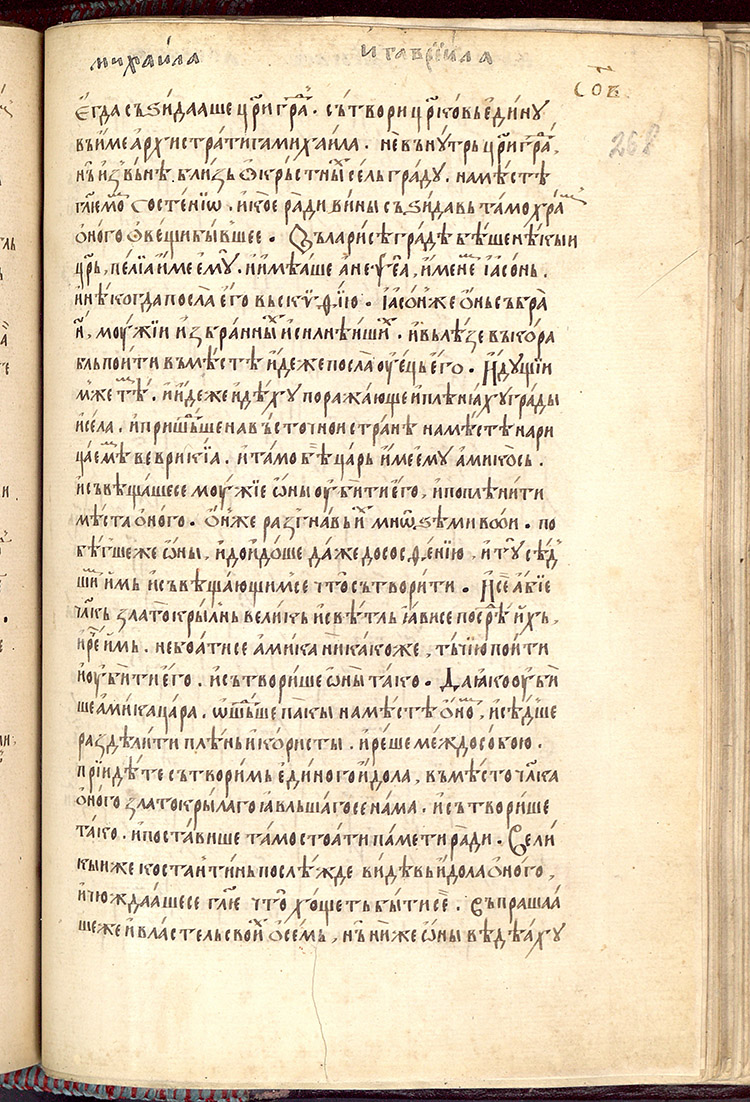 михаила и гаврїила
соб
267
Егда съзидааше цр҃иград. сътвори црковь едину
въ име архистратига михаила. не вънутрь цр҃играда,
нь извьнѣ близь окрьстных сель граду. на мѣстѣ
гл҃емом состенїѡ. и кое ради вины съзидавь тамо храм
оного ѡвещи бывшее. Въ ларисѣ градѣ бѣше нѣкыи
цр҃ь, пелїа име ему. и имѣаше анеѱеа, именем іасонь.
и нѣкогда посла его вь скуѳїю. іасон же онь събра
моужїи избранных и силнѣиших. и вьлѣзе въ кора
бль поити въ мѣстѣ идеже посла оуець его. Идущїи
м же тѣм. и идеже идѣху поражающе и плѣнѣаху грады
и села. и пришьдше на въсточнои странѣ на мѣстѣ нари
цаемѣм веврикїа. и тамо бѣ царь име ему амикось.
и съвѣщашесе моужїе ѡны оубити его, и поплѣнити
мѣста оного. Он же разгнавь их мнѡзѣми вои. по
бѣгше же ѡны, и доидоше даже до сосѳенїю, и ту сѣд
шим имь и съвѣщающимсе что сътворити. И се абїе
чл҃кь златокрылнь великь и свѣтль іависе посрѣд ихь,
и реч имь. не боатисе амика никакоже, тьчїю поити
и оубити его. и сътворише ѡны тако. Да іако оуби
ше амика цара. ѡтшьдше пакы на мѣстѣ оном, и сѣдше
раздѣлити плѣнь и користы. и реше междо собою.
прїидѣте сътворимь единого идола, въ мѣсто чл҃ка
оного златокрылаго іавльшагосе нама. и сътворише
тако. и поставише тамо стоати памети ради. Вели
кыи же костантинь послѣжде видѣвь идола оного,
и чюждаашесе гл҃ю что хощеть быти се. съпрашаа
ше же и властельских о семь, нь ниже ѡны вѣдѣаху